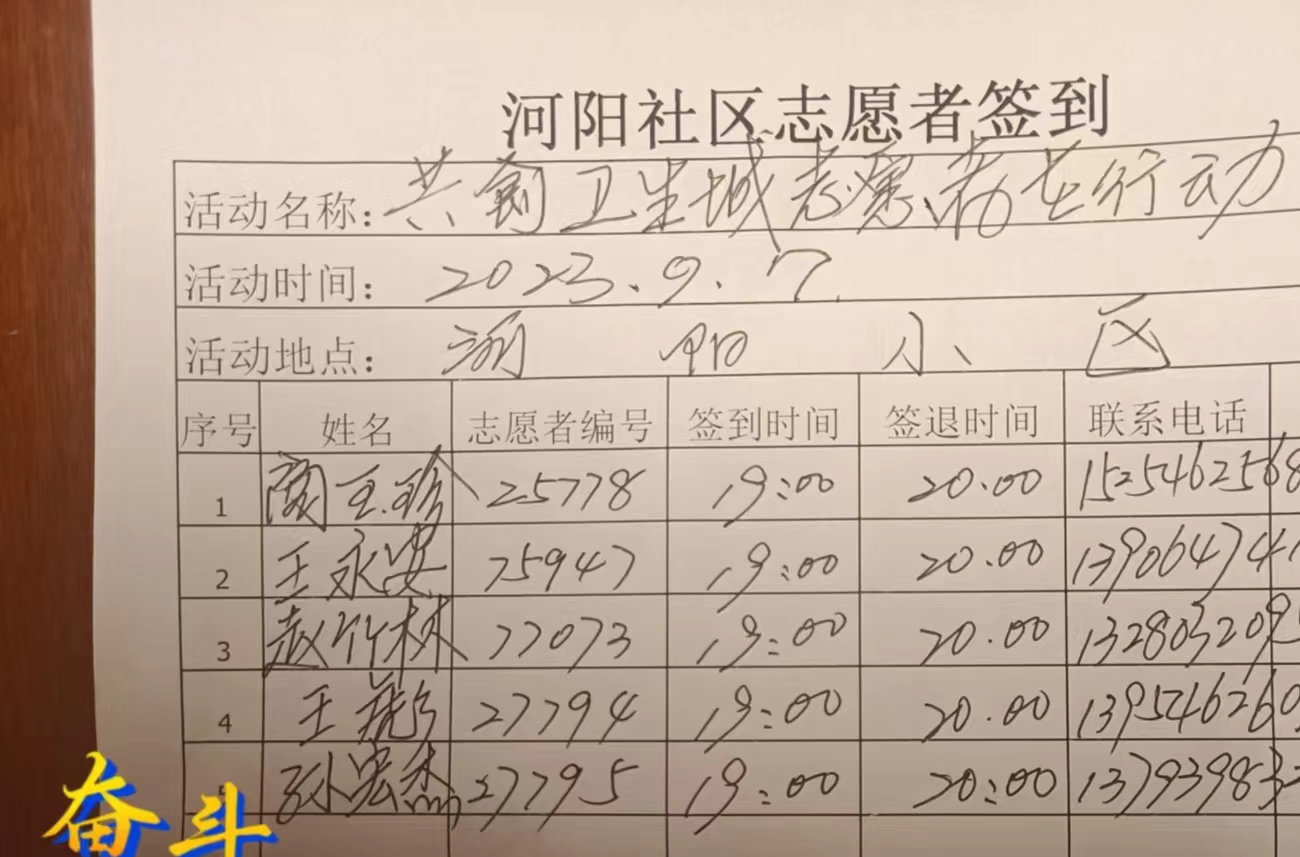 河阳社区志愿者签到
活动名称: 共创卫生城志愿者在行动
活动时间: 2023.9.7.
活动地点: 河阳小区
序号 姓名 志愿者编号 签到时间 签退时间 联系电话
1 王珍 25778 19:00 20.00 15254625668
2 王永安 75947 19:00 20.00 13906474
3 赵竹林 77073 19:00 20.00 132803209
4 王 27794 19:00 20.00 1395462660
孙宏杰 27795 19:00 20:00 137939832
奋斗